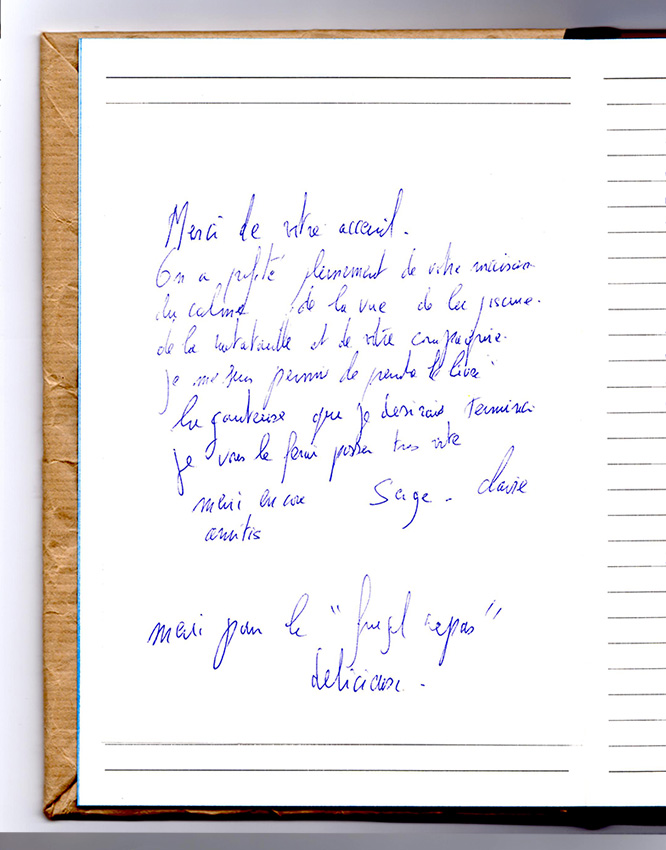 Merci de votre acceuil.
On a profité pleinement de votre maison
du calme de la vue de la piscine.
de la ratatouille et de votre compagnie.
je me suis permis de prendre le livre
la que je desirais terminer
je vous le ferai passer tres vite
merci encore Serge -
amitiés
merci pour le "frugal repas"
délicieux.